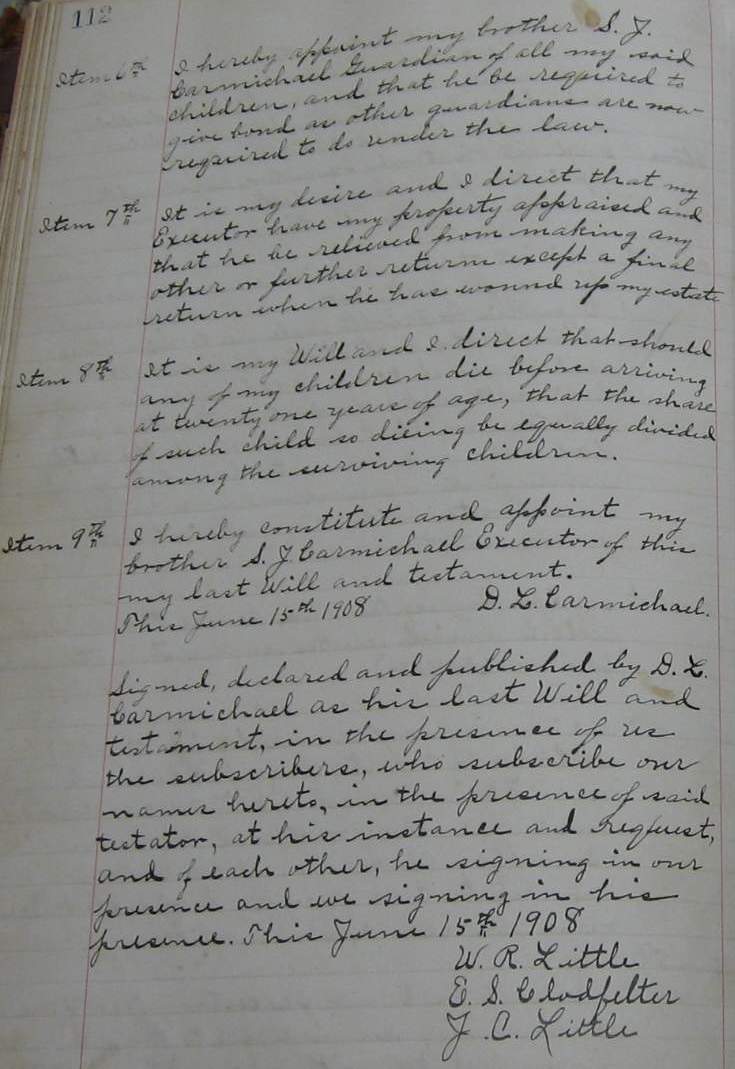 112
Item 6th I hereby appoint my brother S. J.
Carmichael Guardian of all my said
children, and that he be required to
give bond as other guardians are now
required to do under the law.
Item 7th It is my desire and I direct that my
Executor have my property appraised and
that he be relieved from making any
other or further return except a final
return when he has wound up my estate
Item 8th It is my Will and I direct that should
any of my children die before arriving
at twenty one years of age, that the share
of such child so dieing be equally divided
among the surviving children.
Item 9th I hereby constitute and appoint my
brother S. J Carmichael Executor of this
my last Will and testament.
This June 15th 1908 D. L. Carmichael.
Signed, declared and published by D. L.
Carmichael as his last Will and
testament, in the presence of us
the subscribers, who subscribe our
names hereto, in the presence of said
testator, at his instance and request,
and of each other, he signing in our
presence and we signing in his
presence. This June 15th 1908
W. R. Little
E. S. Clodfelter
J. C. Little